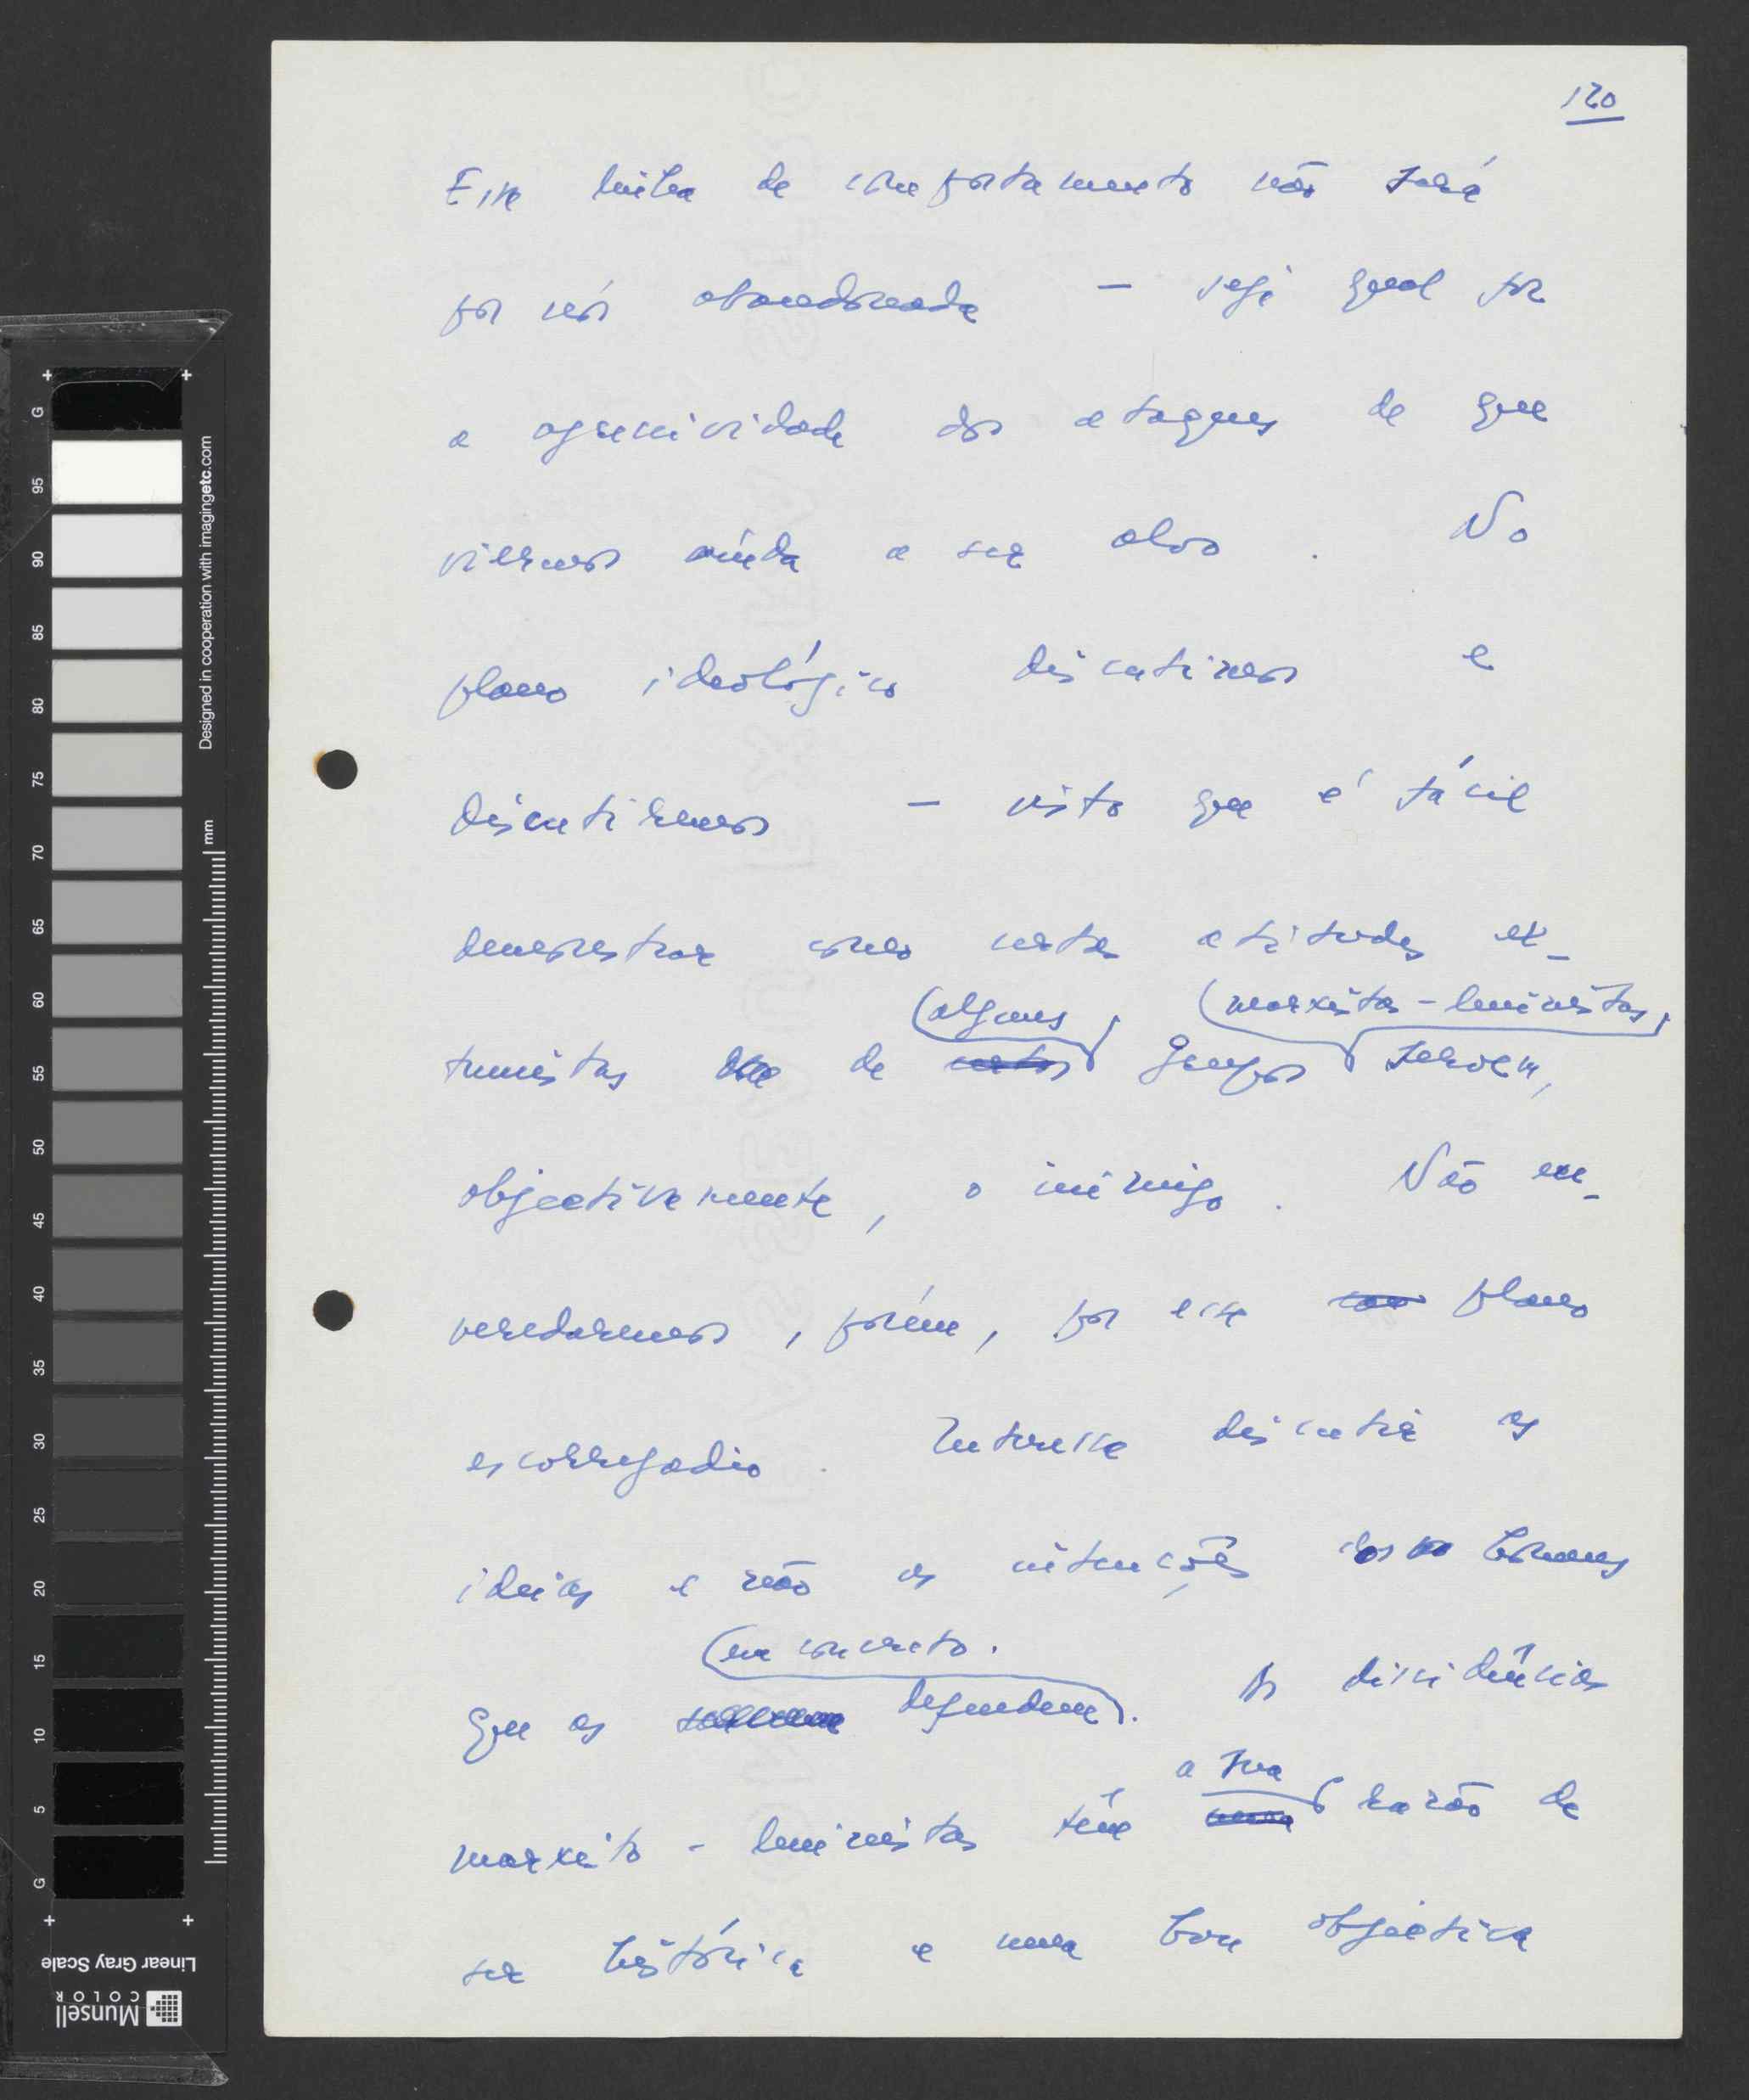 120
Essa linha de comportamento não será
por nós abandonada — seja qual for
a agressividade dos ataques de que
viermos ainda a ser alvo. No
plano ideológico discutimos e
discutiremos — visto que é fácil
demonstrar como certas atitudes ex-
(alguns (marxistas-leninistas,
tremistas de certos grupos servem,
objectivamente, o inimigo. Não en-
veredaremos, porém, por esse plano
escorregadio. Interessa discutir as
ideias e não as intenções dos homens
(em concreto.
que as defendem. As dissidências
a sua
marxisto-leninistas têm razão de
ser histórica e uma base objectiva
G 95 90 85 80 75 70 65 60 55 50 45 40 35 30 25 20 15 10 5 G
mm
Designed in cooperation with imagingetc.com
Linear Gray Scale
Munsell
COLOR